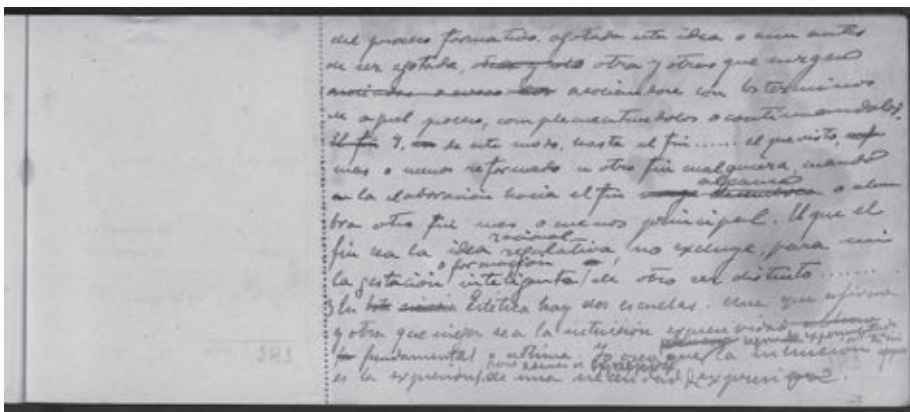 del proceso formativo. agotada esta idea o aun antes
de ser agotada, otra y otras que surgen
asociandose con los terminos
de aquel proceso, complementandolos o continuandolos,
El fin Y, de este modo, hasta el fin...... el previsto,
mas o menos reformado u otro fin cualquiera, cuando
en la elaboración hacia el fin aparece o alum
bra otro fin mas o menos principal. El que el
racional
fin sea la idea regulativa, no excluye, para mi
o formación
la gestación inteligente de otro ser distinto.......
En Estética hay dos escuelas. Una que afirma
y otra que niega sea la intuición expresividad
fundamental o ultima. Yo creo que la intuición
es la expresión de una
181